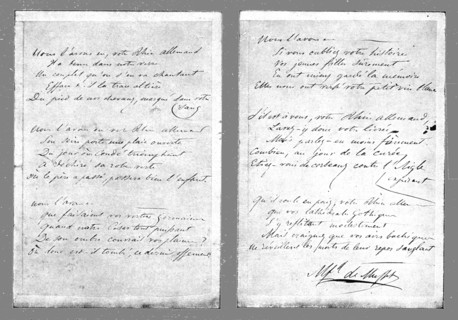 Nous l'avons eu, votre Rhin allemand
Il a tenu dans notre verre
Un couplet qu'on s'en va chantant
Efface-t-il la trace altière
Du pied de nos chevaux, marqué dans votre
sang
Nous l'avons eu, votre Rhin allemand
Son sein porte une plaie ouverte
Du jour où Condé triomphant
A déchiré sa robe verte
Où le père a passé, passera bien l'enfant
nous l'avons
que faisaient vos vertus Germaines
quand notre César tout puissant
De son ombre couvrait vos plaines ?
Où donc est-il tombé, ce dernier ossement
Nous l'avons
Si vous oubliez votre histoire
Vos jeunes filles sûrement
Ont mieux gardé la mémoire
Elles nous ont versé votre petit vin blanc
S'il est à vous, votre Rhin allemand,
Lavez-y donc votre livrée
Mais parlez-en moins fièrement
Combien, au jour de la curée
Etiez-vous de corbeaux contre l'Aigle
expirant
Qu'il coule en paix, votre Rhin
que vos cathédrales Gothiques
S'y reflètent modestement
Mais craignez que vos airs bachiques
ne réveillent les morts de leur repos sanglant
Alf. de Musset